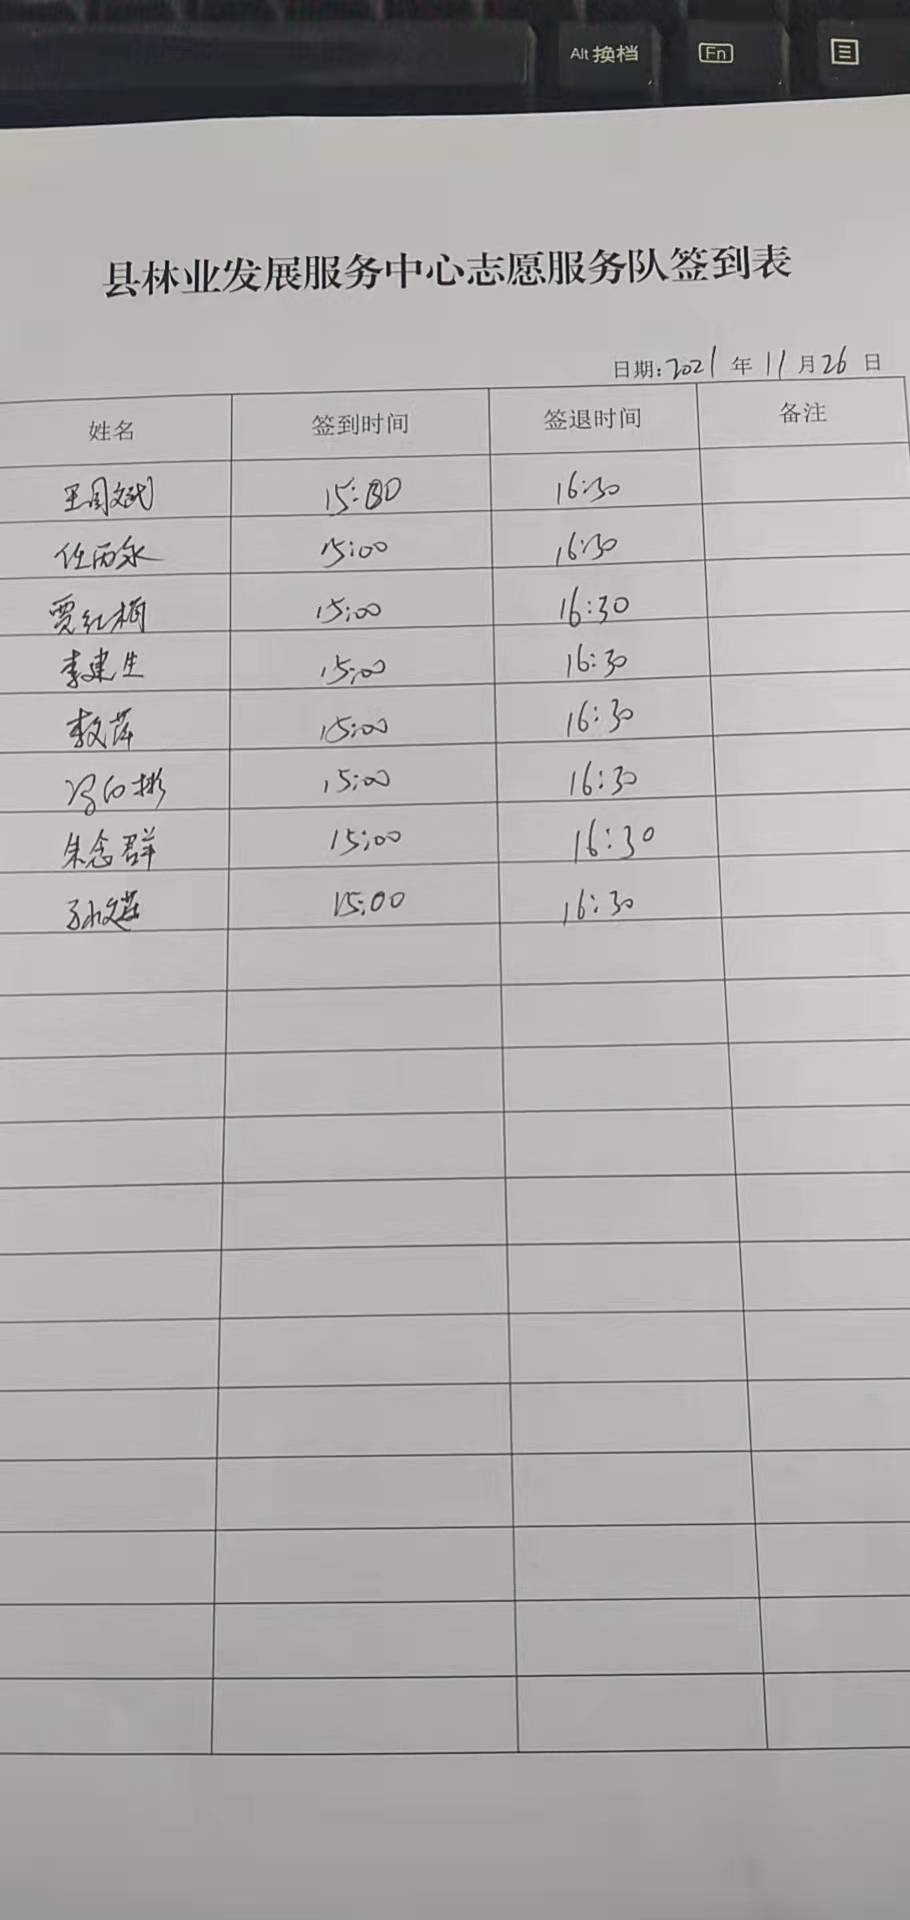 Alt 换档
Fn
县林业发展服务中心志愿服务队签到表
日期:2021年11月26日
姓名 签到时间 签退时间 备注
15:00 16:30
任丙永 15:00 16:30
贾红梅 15:00 16:30
李建生 15:00 16:30
李文萍 15:00 16:30
冯向彬 15:00 16:30
朱念群 15:00 16:30
孙文莲 15:00 16:30